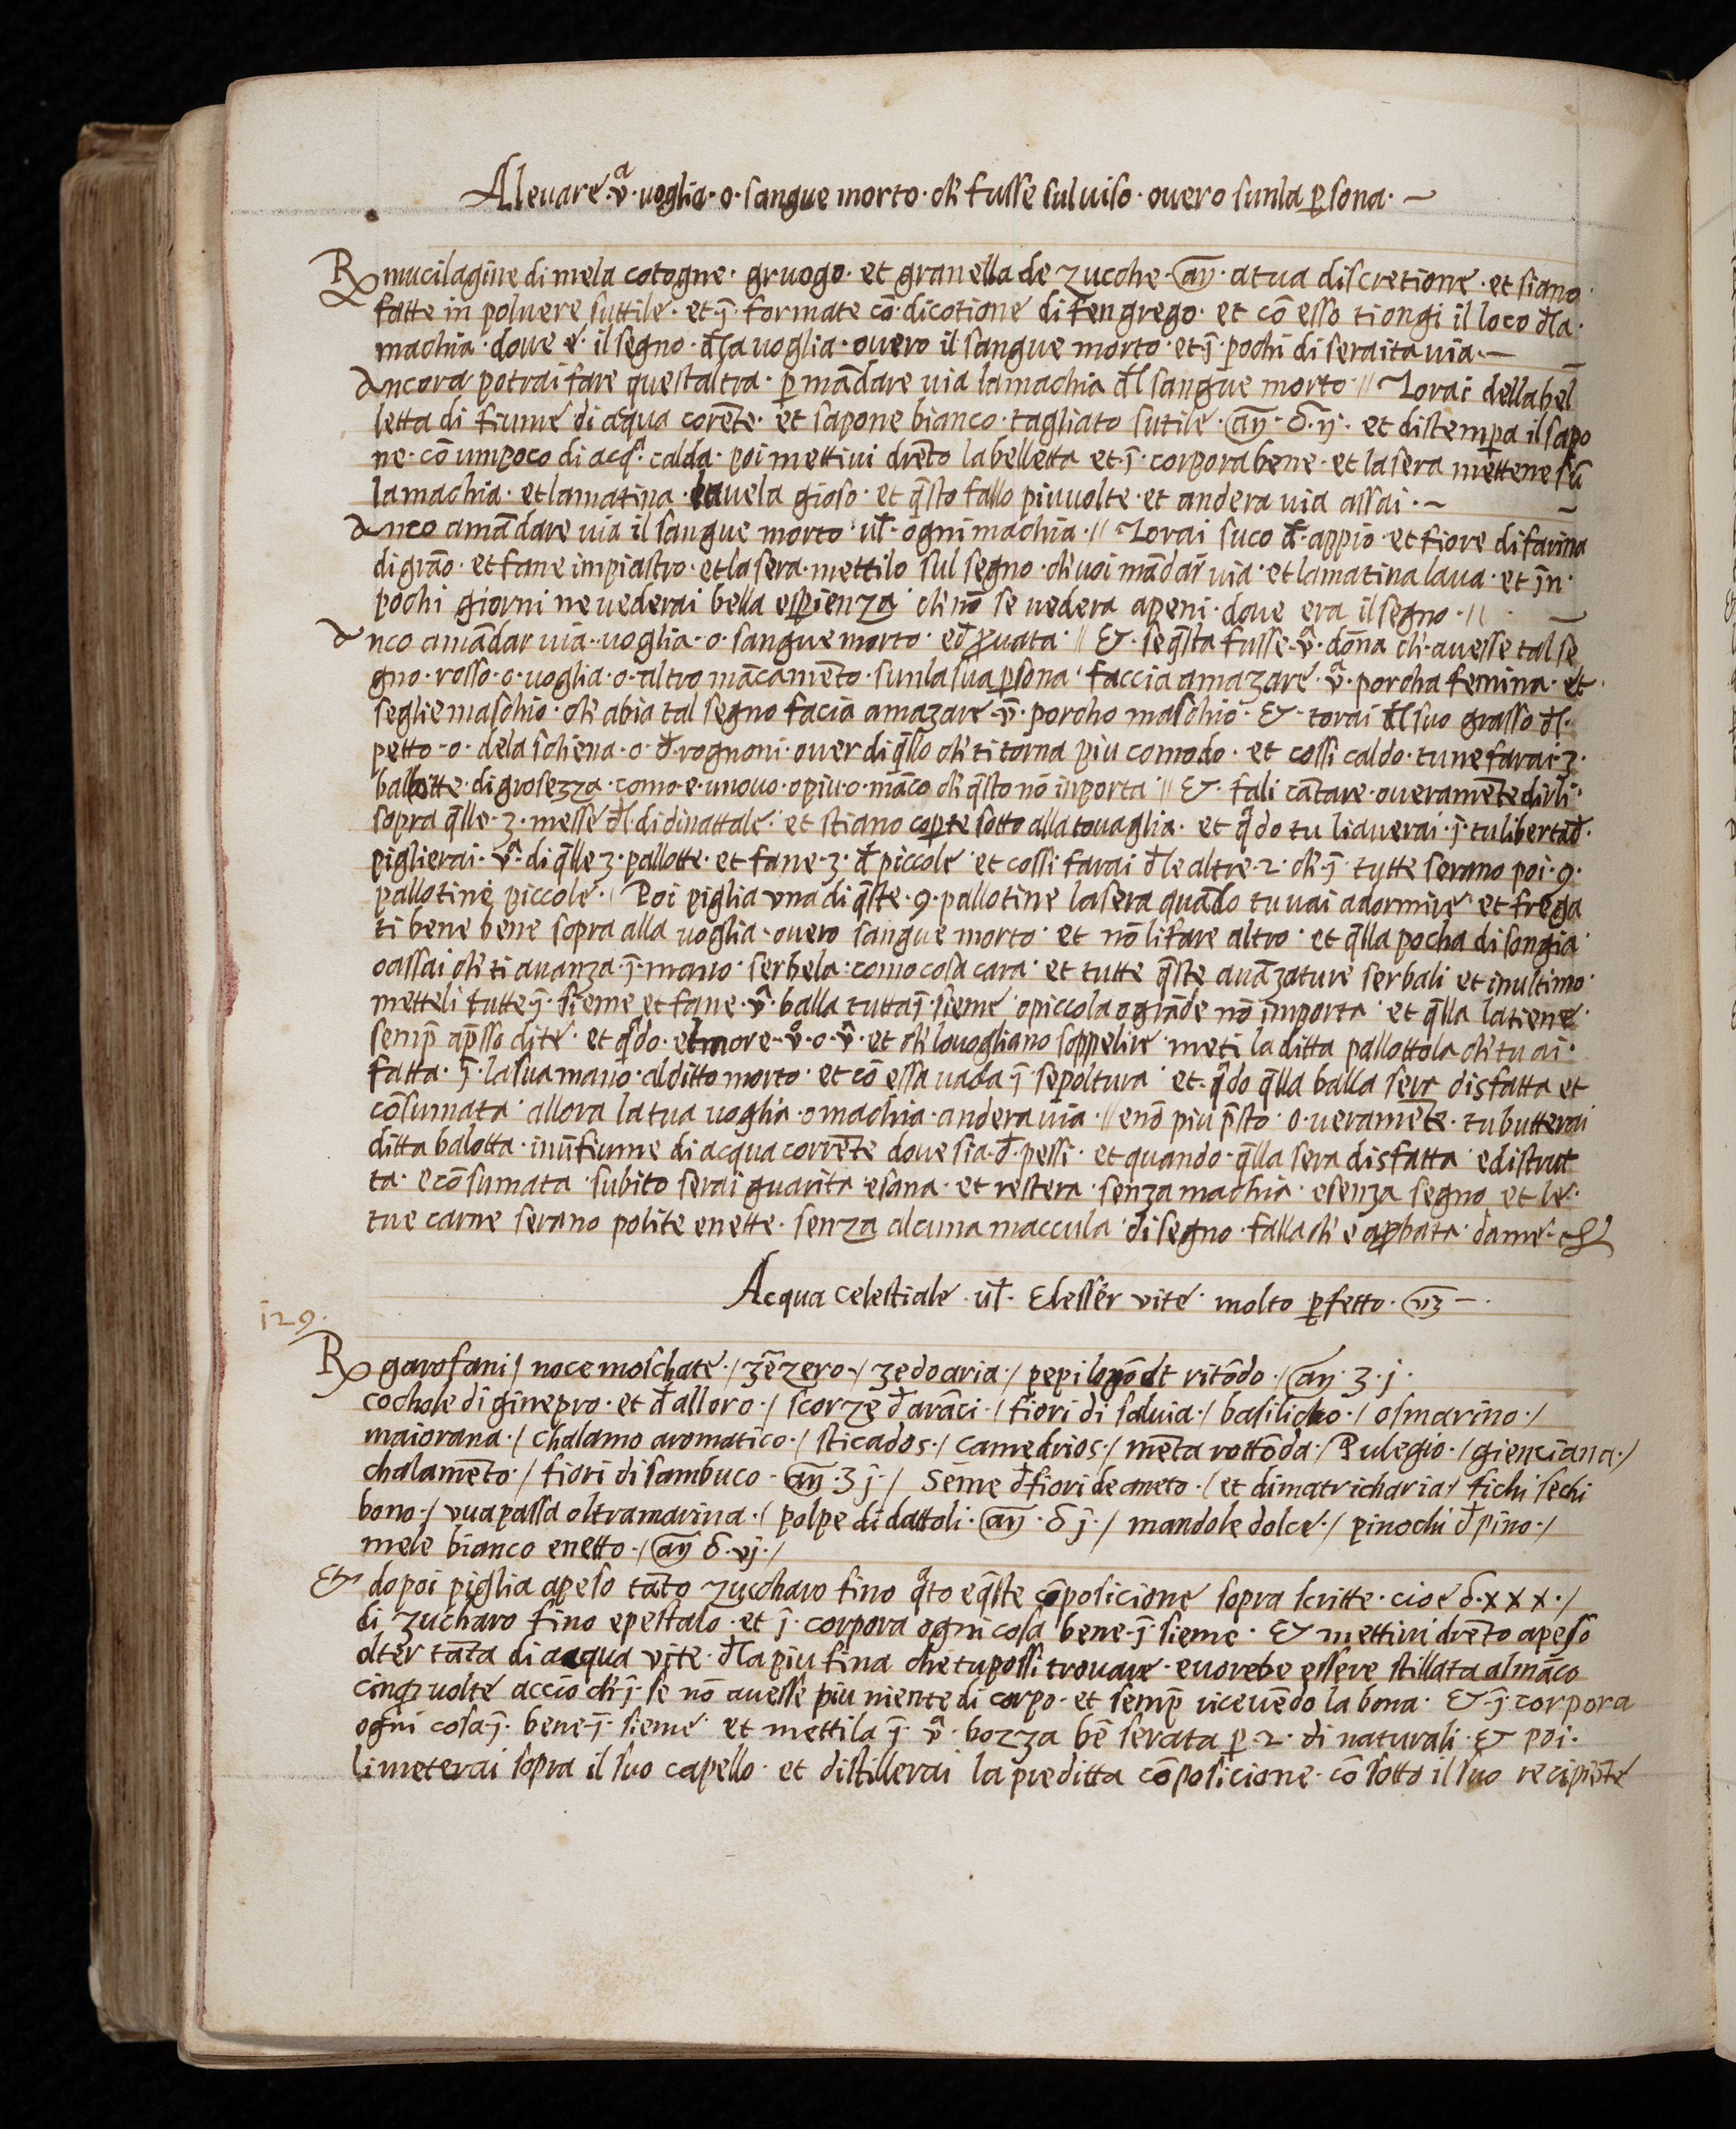 A levare · v̄ᵃ · voglia · o · sangue morto · ch̄ fusse sul viso · overo sun la ꝑsona · ~
℞ mucilagine di mela cotogne · gruogo · et granella de zucche · an̄ · a tua discretione · et siano
fatte in polvere suttile · et · j̄ · formate cō · dicotione di fengrego · et cō esso ti ongi il loco đla ·
machia · dove e · il segno · đla voglia · overo il sangue morto · et · j̄ · pochi di sera ita via · —
Ancora potrai fare quest altra · ꝑ mādare via la machia đl sangue morto // Torai della bel
letta di fiume di aqua corēte · et sapone bianco · tagliato sutile · an̄ · δ · ij · et distempa il sapo
ne · cō un poco di acqᵃ · calda · poi mettivi drēto la belletta et · j̄ · corpora bene · et la sera mettene sū
la machia · et la matina lavela gioso · et q̄sto fallo piu volte · et andera via assai · ~
Anco a mādare via il sangue morto · ul̄ · ogni machia · // Torai suco đ · appio · et fiore di farina
di grāo · et fane impiastro · et la sera · mettilo sul segno · ch̄ voi mādar̄ via · et la matina lava · et j̄n ·
pochi giorni ne vederai bella esꝑienza · ch̄ nō se vedera apeni · dove era il segno · //
Anco a mādar via · voglia · o · sangue morto · ed ꝓvata · // Et · se q̄sta fusse · v̄ᵃ · dōna ch̄ · avesse tal se
gno · rosso · o · voglia · o · altro mācamēto · sun la sua ꝑsona · faccia amazare · v̄ᵃ · porcha femina · et ·
se gli e maschio · ch̄ abia tal segno facia amazare · v̄ · porcho maschio · Et · torai đl suo grasso đl ·
petto · o · dela schiena · o · đ · rognoni · over di q̄llo ch̄ ti torna piu comodo · et cossi caldo · tu ne farai · 3 ·
ballotte · di grosezza · como · e · un ovo · o piu · o · māco ch̄ q̄sto nō inporta // Et · fali cātare · overamēte dirli ·
sopra q̄lle · 3 · messe đl · di dinattale · et stiano coꝑte sotto alla tovaglia · et qᵃ̄do tu li averai · j̄ · tu libertađ ·
piglierai · v̄ᵃ · di q̄lle 3 · pallotte · et fane · 3 · đ piccole · et cossi farai đle altre · 2 · ch̄ · j̄ · tutte serano poi · 9 ·
pallotine piccole · // Poi piglia una di q̄ste · 9 · pallotine la sera quādo tu vai a dormire · et frega
ti bene bene sopra alla voglia · overo sangue morto · et nō li fare altro · et q̄lla pocha di songia ·
o assai ch̄ ti avanza · j̄ · mano · serbela · como cosa cara · et tutte q̄ste avāzature serbali et in ultimo ·
metteli tutte · j̄ · sieme et fane · v̄ᵃ · balla tutta j̄ · sieme · o piccola o grāde nō importa · et q̄lla la tiene ·
semp̄ ap̄sso di te · et qᵃ̄do · el more · v̄ᵒ · o · v̄ᵃ · et ch̄ lo vogliano soppelire · meti la ditta pallottola ch̄ tu ai ·
fatta · j̄ · la sua mano · al ditto morto · et cō essa vada j̄ · sepoltura · et · qᵃ̄do q̄lla balla sera disfatta et
cōsumata · allora la tua voglia · o machia · andera via · // e nō piu p̄sto · o · veramēte · tu butterai
ditta balotta · in ū fiume di acqua corrēte dove sia · đ · pessi · et quando · q̄lla sera disfatta e distrut
ta · e cōsumata · subito serai guarita e sana · et restera · senza machia · e senza segno et le ·
tue carne serano polite e nette · senza alcuna maccula · di segno · falla ch̄ e aꝓbata · da me ·
Acqua celestiale · ul̄ · Elesser vite · molto ꝑfetto ·
129 ·
℞ garofani / noce moschate · / zēzero · / zedoaria · / pepi lōgo et ritōdo · / an̄ · ʒ · j ·
cochole di ginepro · et đ alloro · / scorze đ arāci · / fiori di salvia · / basilicho · / osmarino · /
maiorana · / chalamo aromatico · / sticados · / camedrios · / mēta rottōda · / Pulegio · / gienciana · /
chalamēto · / fiori di sambuco · an̄ · ʒ j̄ · / Sēme đ fiori de aneto · / et di matricharia / fichi sechi
bono · / uva passa oltramarina · / polpe di dattoli · an̄ · δ j̄ · / mandole dolce · / pinochi đ pino · /
mele bianco e netto · / an̄ δ · vj · /
Et dopoi piglia apeso tāto zuccharo fino qᵃ̄to e q̄ste cōposicione sopra scritte · cioe δ · xxx · /
di zucharo fino e pestalo · et j̄ · corpora ogni cosa bene · j̄ · sieme · Et mettivi drēto apeso
olter tāta di acqua vite · đla piu fina che tu possi trovare · e vorebe essere stillata al māco
cinqꝫ volte acciō ch̄ · j̄ · se nō avesse piu niente di corpo · et semp̄ ricevēdo la bona · Et · j̄ · corpora
ogni cosa j̄ · bene · j̄ · sieme · et mettila j̄ · v̄ᵃ · bozza bē serata ꝑ · 2 · di naturali · Et poi ·
li meterai sopra il suo capello · et distillerai la preditta cōposicione · cō sotto il suo recipiēte